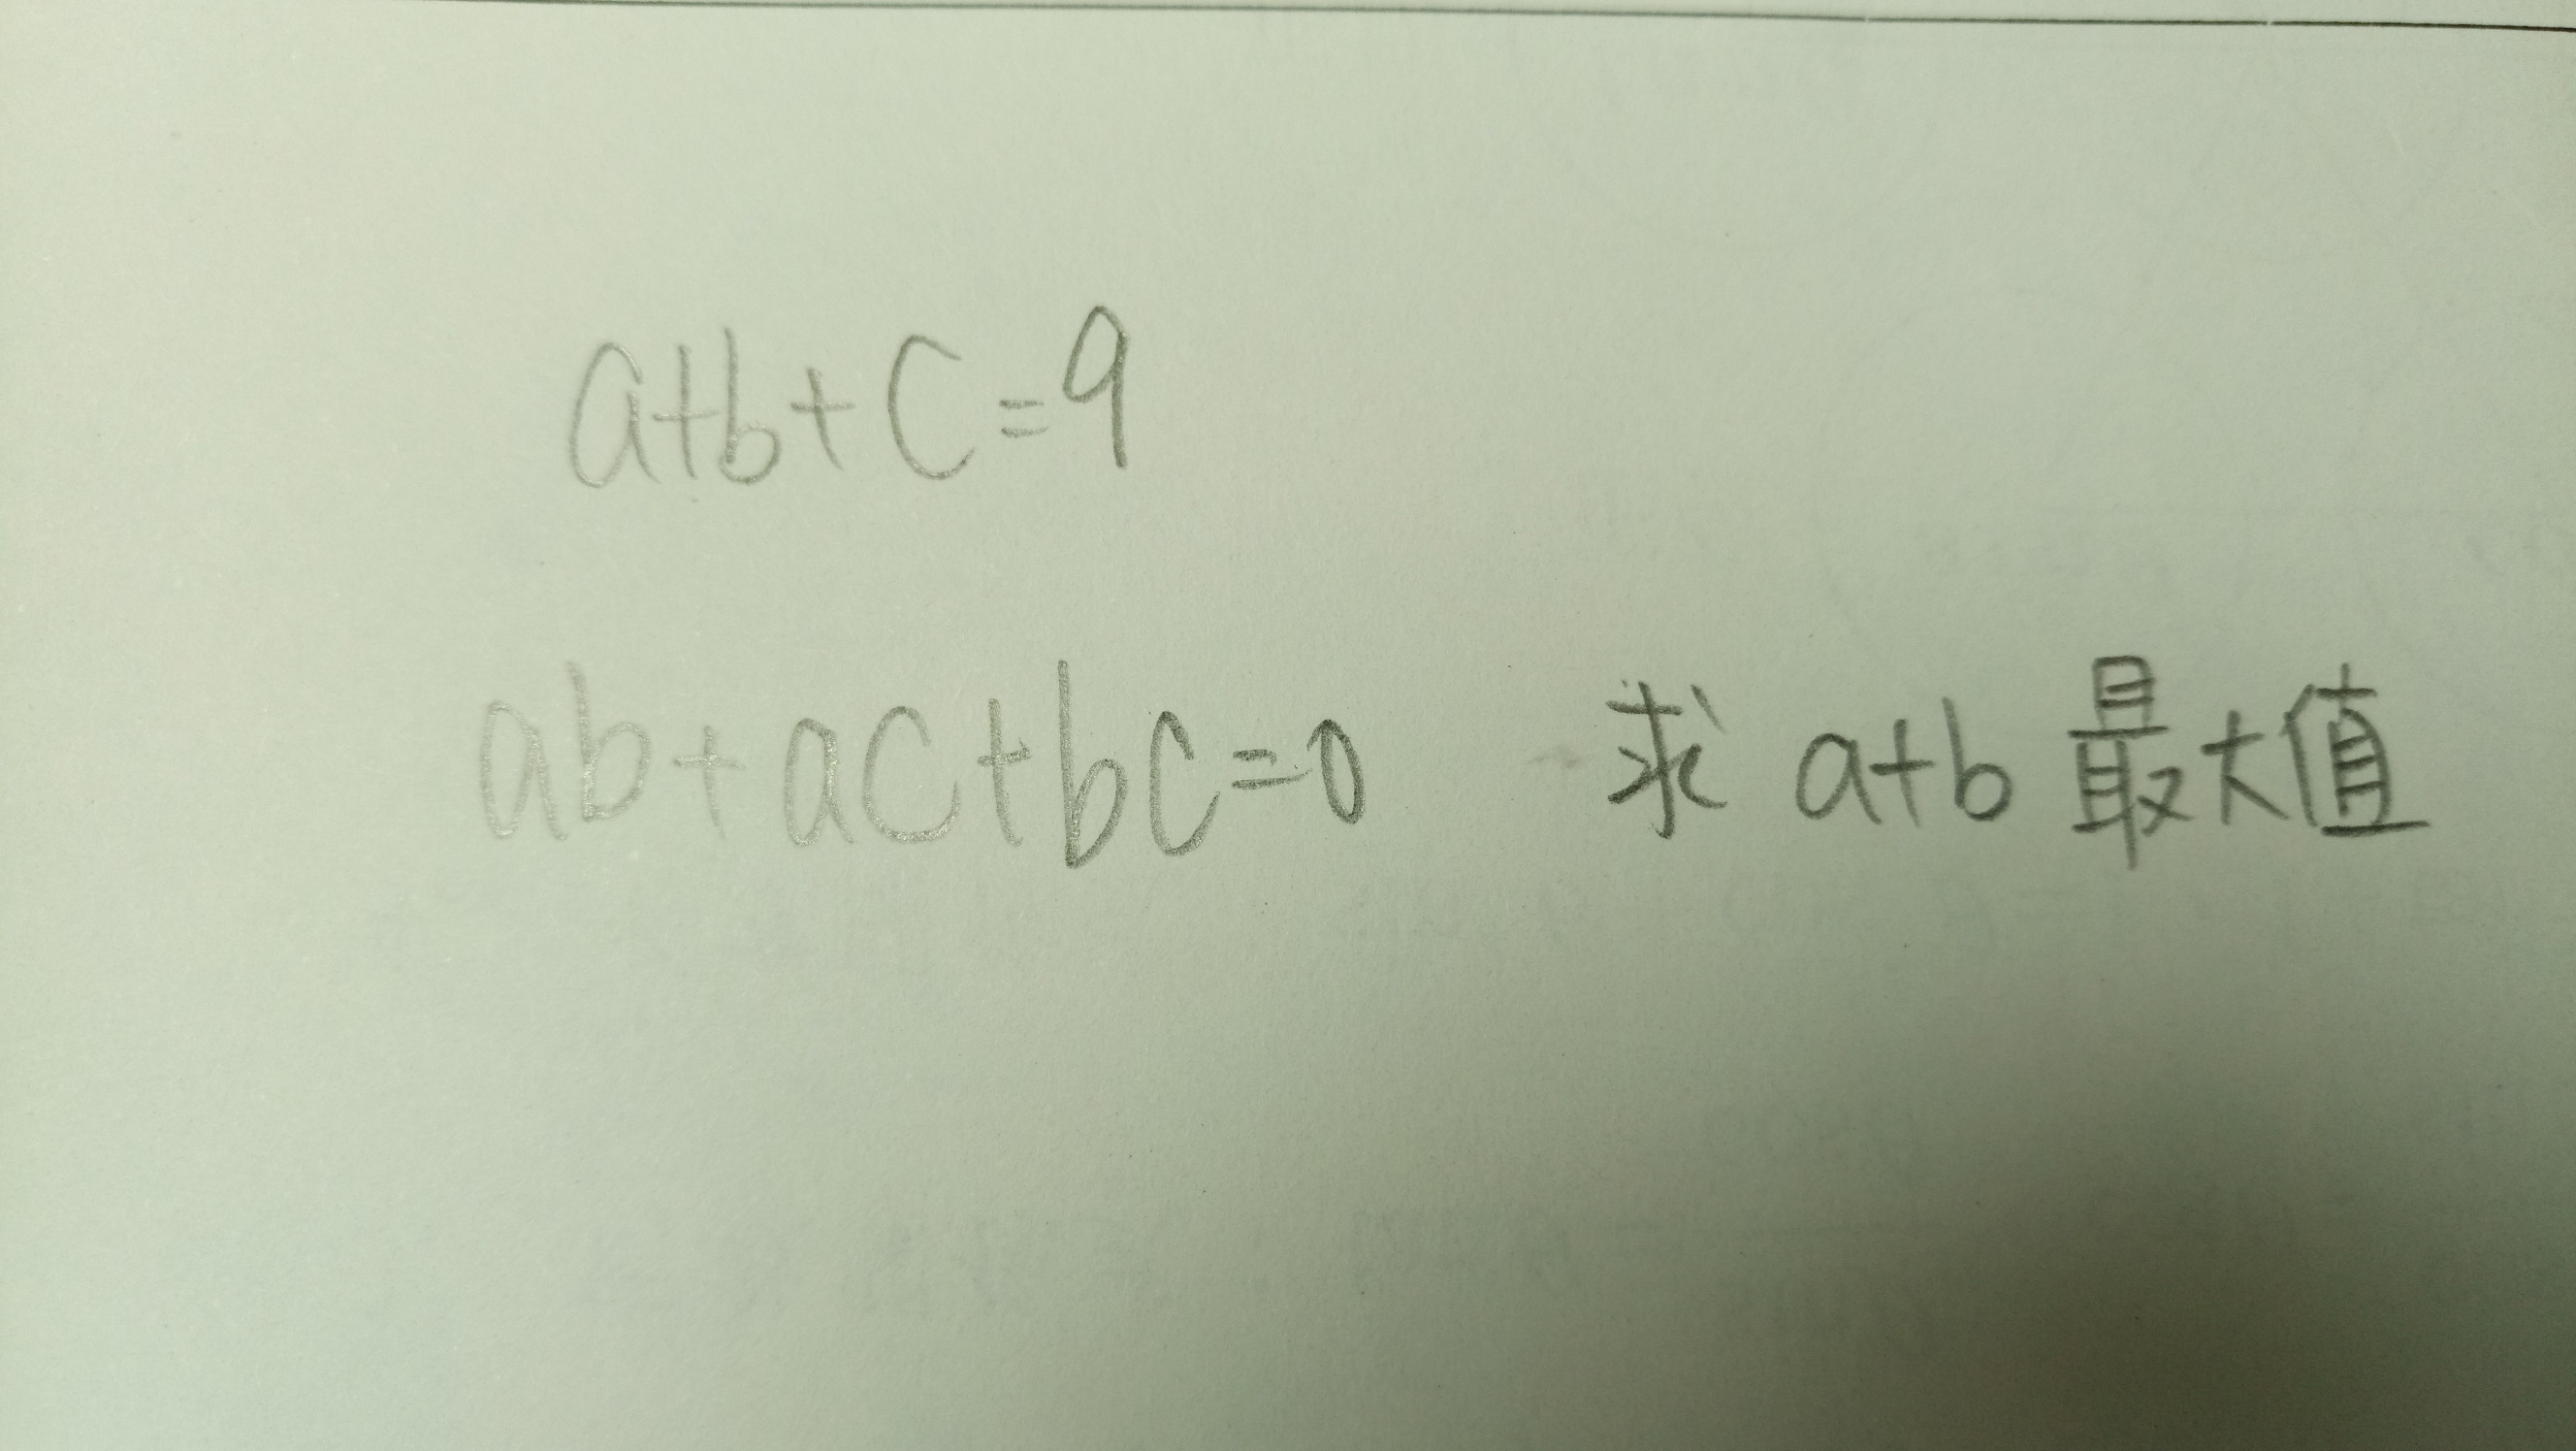 a+b+c=9
ab+ac+bc=0 求 a+b 最大值